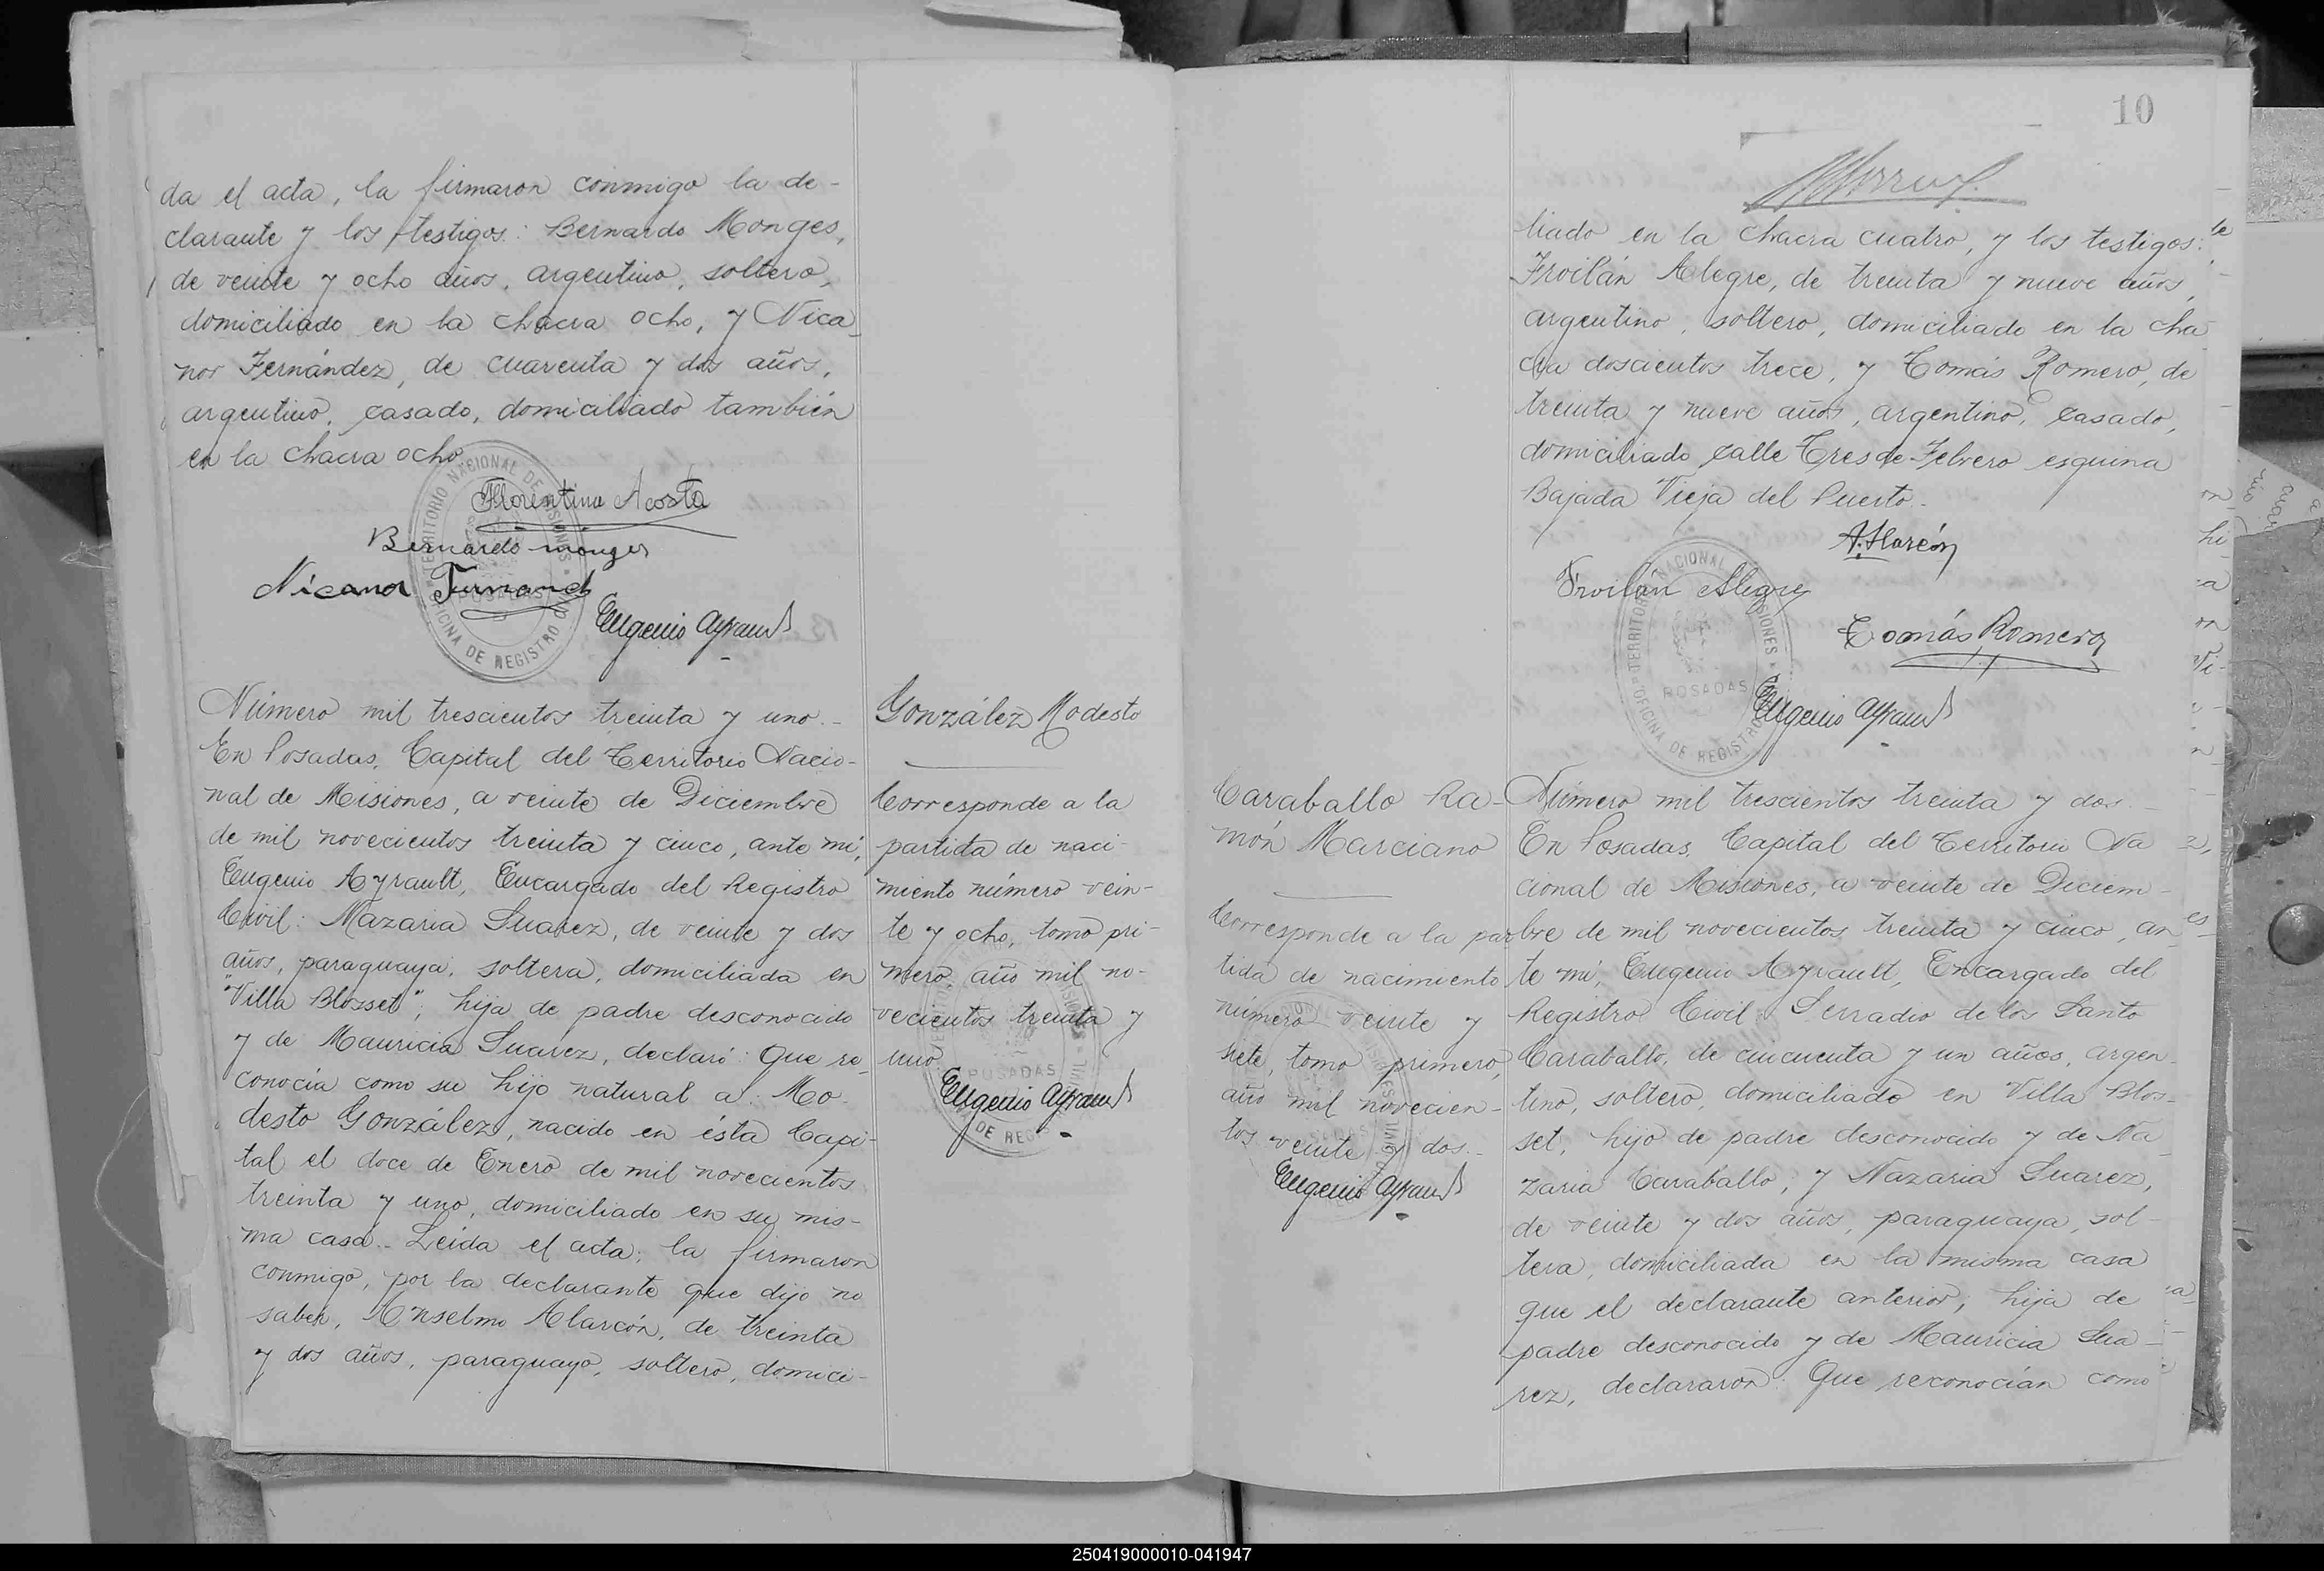 da el acta, la firmaron conmigo la de-
clarante y los testigos: Bernardo Monges,
de veinte y ocho años, argentino, soltero,
domiciliado en la chacra ocho, y Nica-
nor Fernández, de cuarenta y dos años,
argentino, casado, domiciliado también
en la chacra ocho
TERRITORIO NACIONAL DE MISIONES
OFICINA DE REGISTRO CIVIL
POSADAS
Florentina Acosta
Bernardo monges
Nicanor
Eugenio Ayrault
Número mil trescientos treinta y uno.-
En Posadas, Capital del Territorio Nacio-
nal de Misiones, a veinte de Diciembre
de mil novecientos treinta y cinco, ante mí,
Eugenio Ayrault, Encargado del Registro
Civil: Nazaria Suarez, de veinte y dos
años, paraguaya, soltera, domiciliada en
"Villa Blosset"; hija de padre desconocido
y de Mauricia Suarez, declaró: Que re-
conocía como su hijo natural a: Mo-
desto González, nacido en ésta Capi-
tal el doce de Enero de mil novecientos
treinta y uno, domiciliado en su mis-
ma casa.- Leida el acta; la firmaron
conmigo, por la declarante que dijo no
saber, Anselmo Alarcón, de treinta
y dos años, paraguayo, soltero, domici-
González Modesto
Corresponde a la
partida de naci-
miento número vein-
te y ocho, tomo pri-
mero, año mil no-
vecientos treinta y
uno.
POSADAS
Eugenio Ayrault
10
liado en la chacra cuatro, y los testigos:
Froilán Alegre, de treinta y nueve años,
argentino, soltero, domiciliado en la cha
cra doscientos trece, y Tomás Romero, de
treinta y nueve años, argentino, casado,
domiciliado calle Tres de Febrero esquina
Bajada Vieja del Puerto.-
A. Alarcón
Froilán Alegre
Tomás Romero
TERRITORIO NACIONAL DE MISIONES
OFICINA DE REGISTRO
POSADAS
Eugenio Ayrault
Caraballo Ra-
món Marciano
Corresponde a la par
tida de nacimiento
número veinte y
siete, tomo primero,
año mil novecien-
tos veinte y dos.-
Eugenio Ayrault
Número mil trescientos treinta y dos.-
En Posadas, Capital del Territorio Na
cional de Misiones, a veinte de Diciem-
bre de mil novecientos treinta y cinco, an
te mí, Eugenio Ayrault, Encargado del
Registro Civil: Serradio de los Santo
Caraballo, de cincuenta y un años, argen-
tino, soltero, domiciliado en Villa Blos-
set, hijo de padre desconocido y de Na
zaria Caraballo; y Nazaria Suarez,
de veinte y dos años, paraguaya, sol-
tera, domiciliada en la misma casa
que el declarante anterior; hija de
padre desconocido y de Mauricia Sua-
rez, declararon: Que reconocían como
250419000010-041947